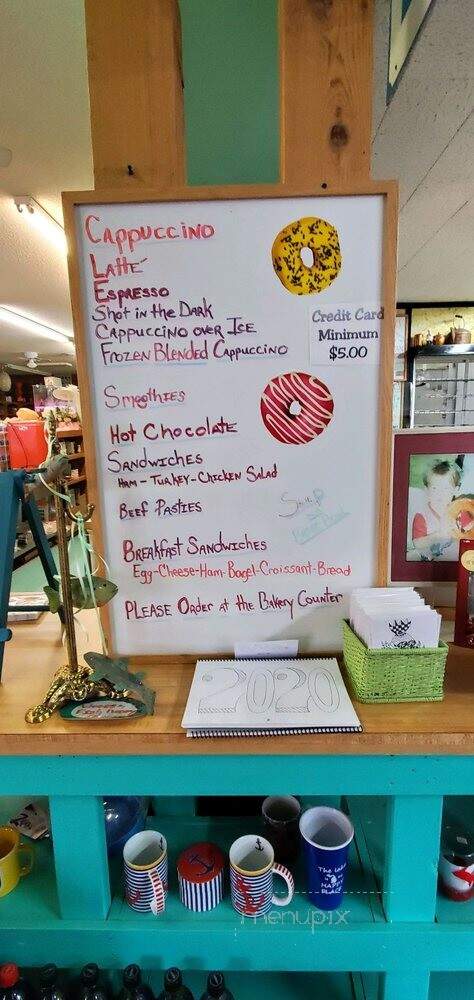 Cappuccino
Latté
Espresso
Shot in the Dark
Cappuccino over Ice
Frozen Blended Cappuccino
Credit Card
Minimum
$5.00
Smoothies
Hot Chocolate
Sandwiches
Ham - Turkey - Chicken Salad
Beef Pasties
Soup
Breakfast Sandwiches
Egg-Cheese-Ham-Bagel-Croissant-Bread
Please Order at the Bakery Counter
2020
The lake
is my
HAPPY
PLACE
menupix